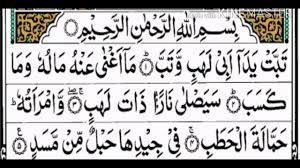 بِسْمِ اللهِ الرَّحْمٰنِ الرَّحِيْمِ
تَبَّتْ يَدَآ اَبِيْ لَهَبٍ وَّتَبَّ ۝۱ مَآ اَغْنٰى عَنْهُ مَالُهٗ وَمَا
كَسَبَ ۝۲ سَيَصْلٰى نَارًا ذَاتَ لَهَبٍ ۝۳ وَّامْرَاَتُهٗ
حَمَّالَةَ الْحَطَبِ ۝۴ فِيْ جِيْدِهَا حَبْلٌ مِّنْ مَّسَدٍ ۝۵